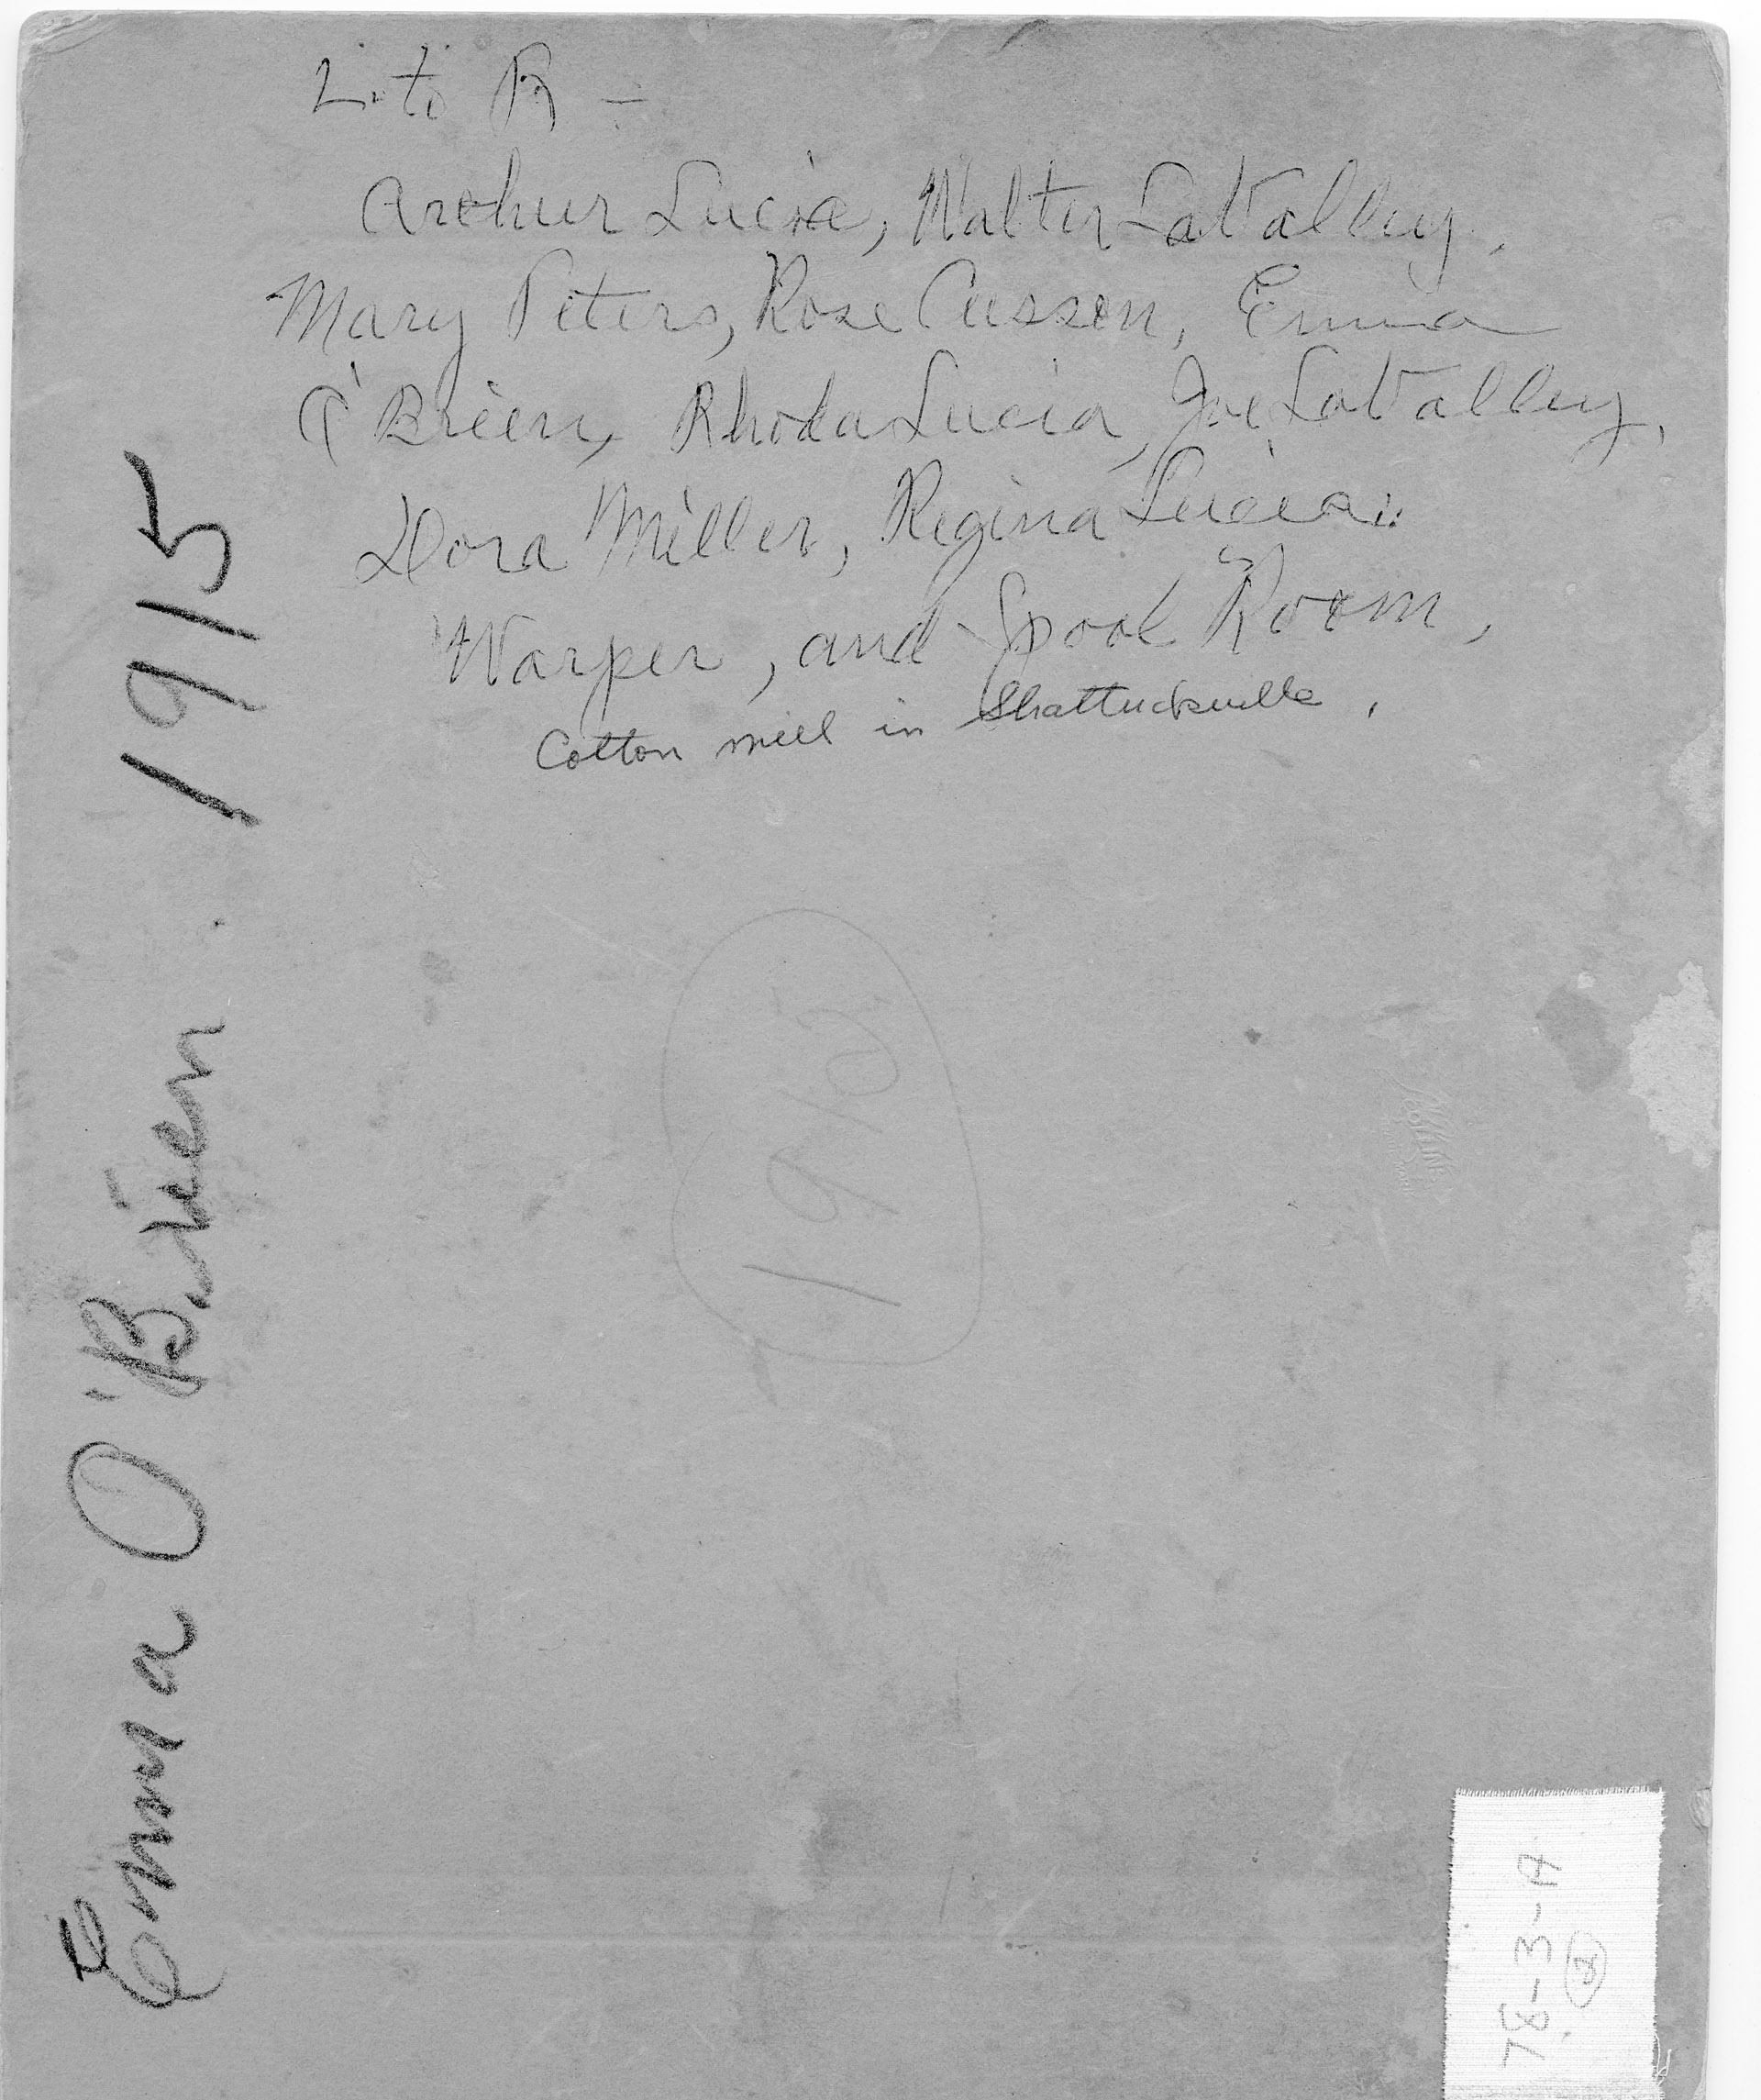 L. to R -
Arthur Lucia, Walter LaValley,
Mary Peters, Rose Cussen, Emma
O'Brien, Rhoda Lucia, Joe LaValley,
Dora Miller, Regina Lucia:
Warper, and Spool Room,
Cotton mill in Shattuckville,
Emma O'Brien. 1915
1915
78-3-A